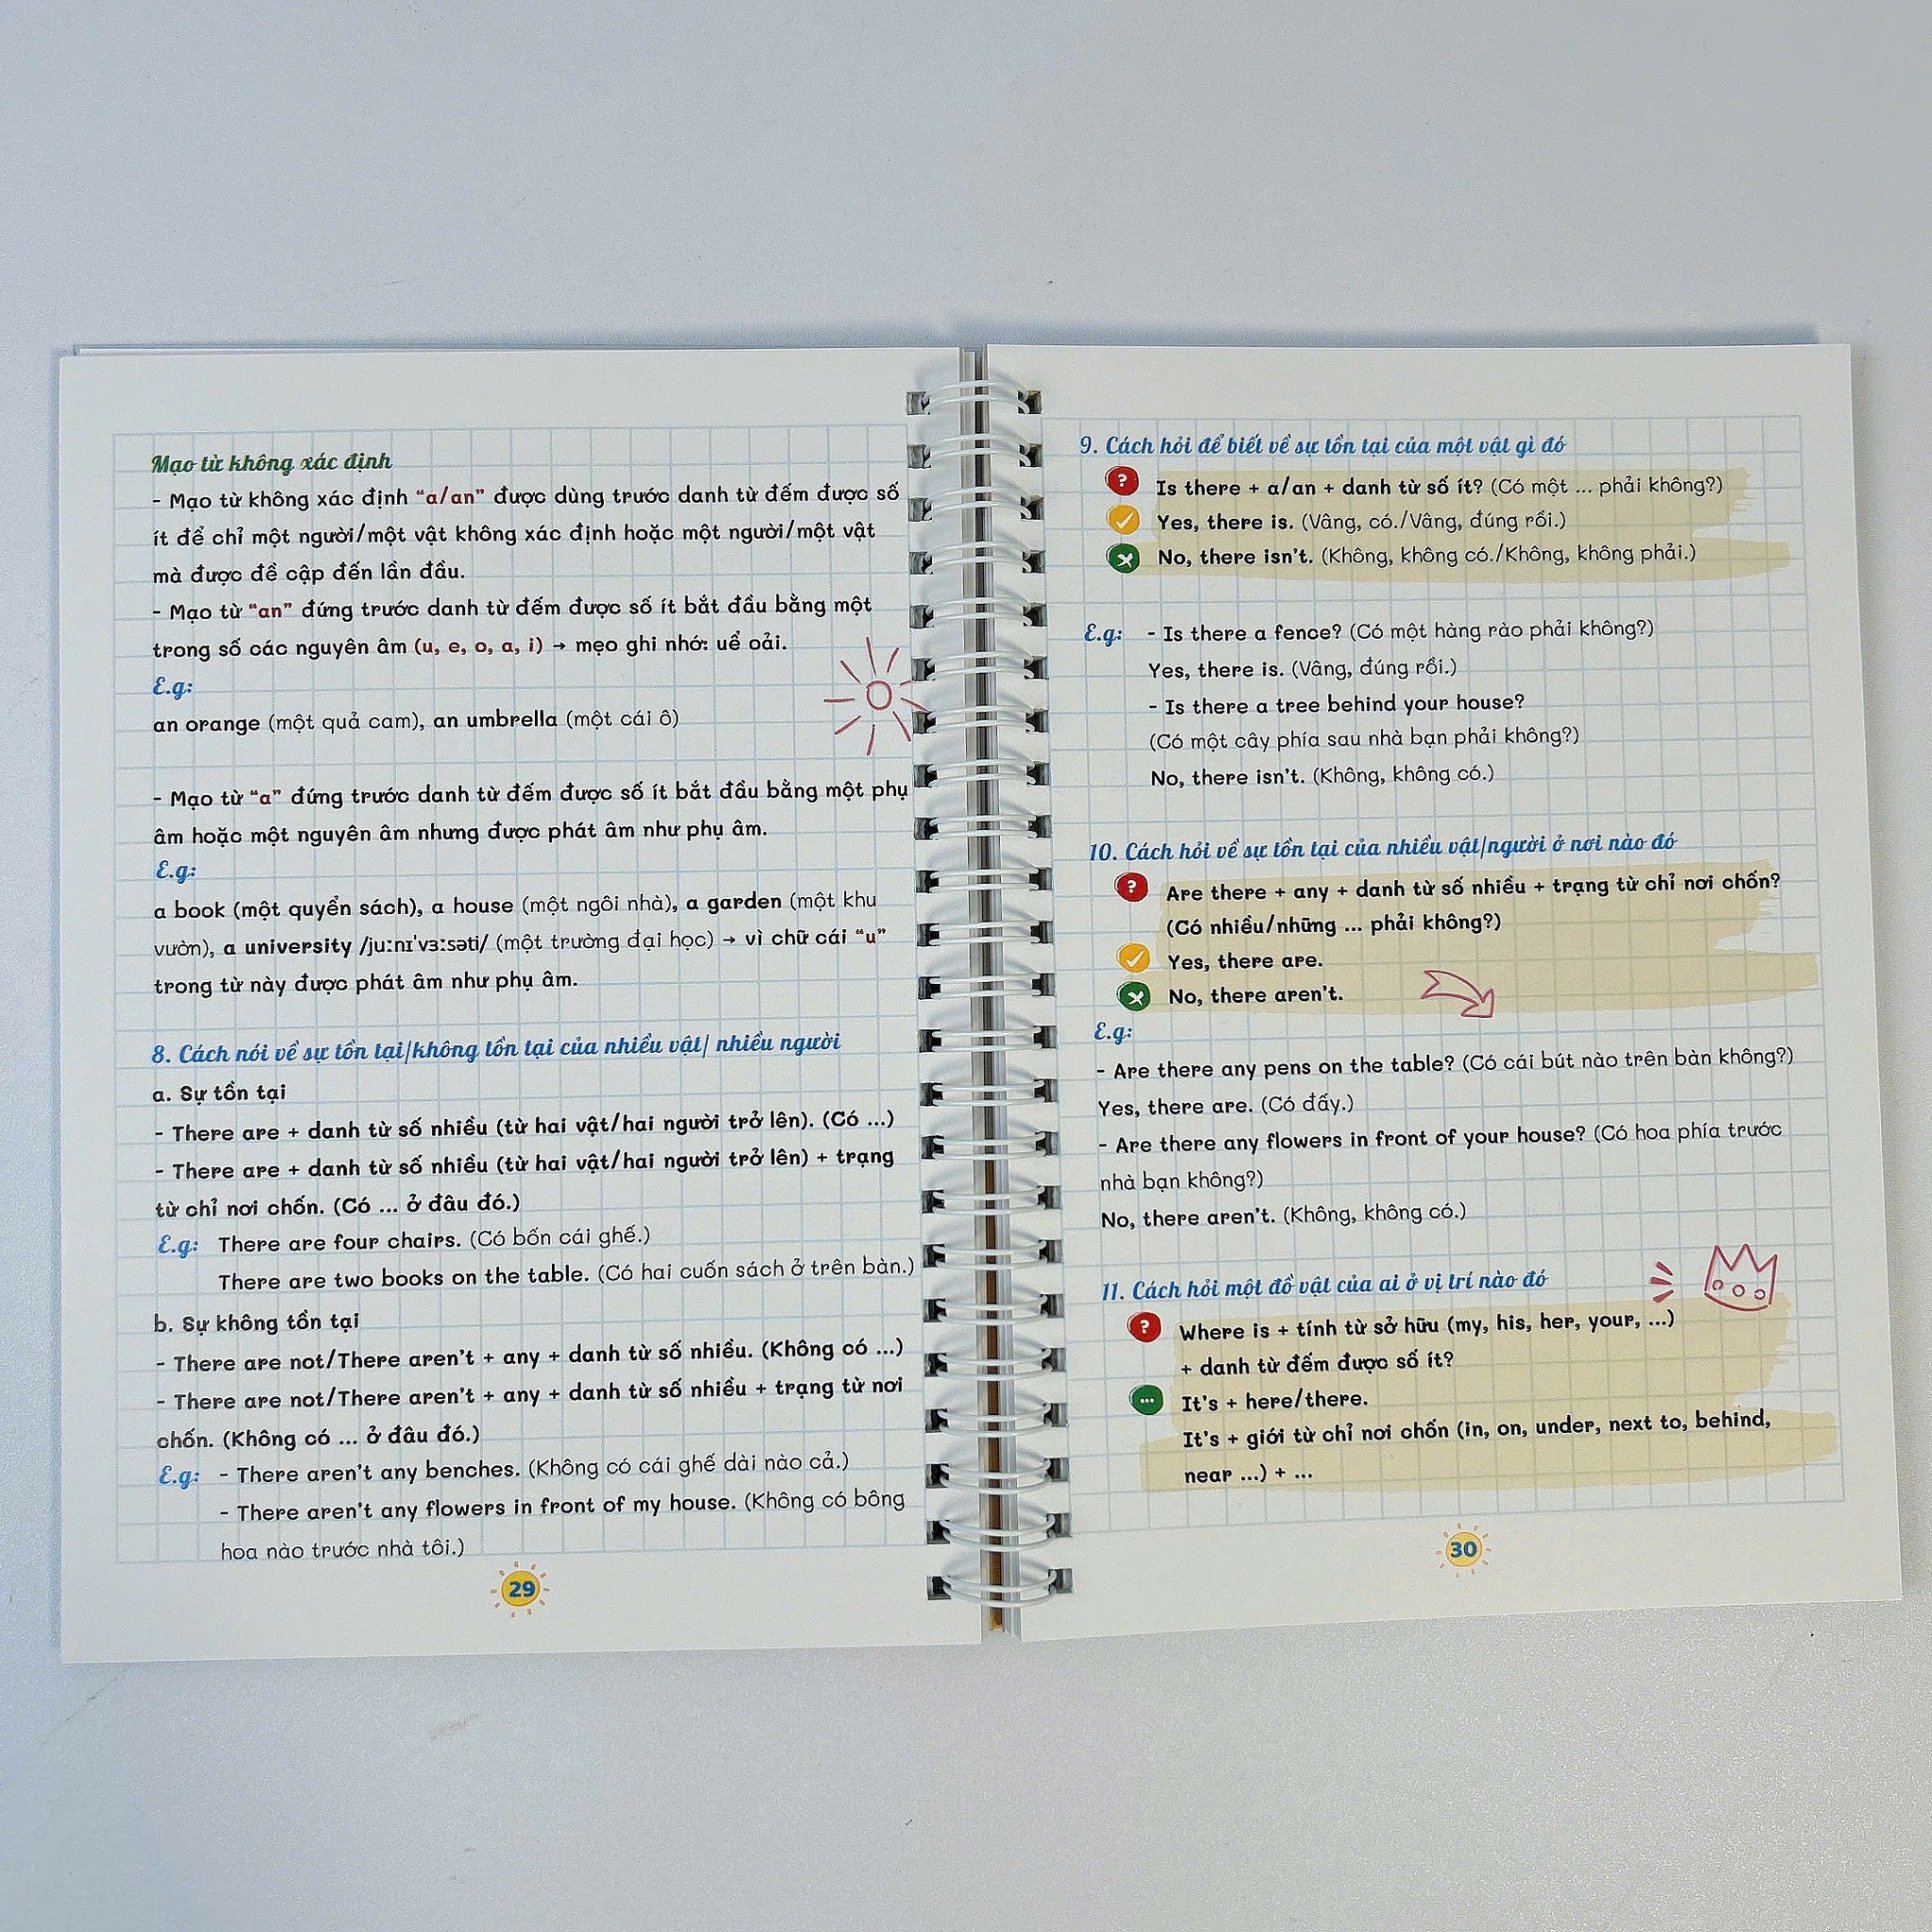 Mạo từ không xác định
- Mạo từ không xác định “a/an” được dùng trước danh từ đếm được số
ít để chỉ một người/một vật không xác định hoặc một người/một vật
mà được đề cập đến lần đầu.
- Mạo từ “an” đứng trước danh từ đếm được số ít bắt đầu bằng một
trong số các nguyên âm (u, e, o, a, i) → mẹo ghi nhớ: uể oải.
E.g:
an orange (một quả cam), an umbrella (một cái ô)
- Mạo từ “a” đứng trước danh từ đếm được số ít bắt đầu bằng một phụ
âm hoặc một nguyên âm nhưng được phát âm như phụ âm.
E.g:
a book (một quyển sách), a house (một ngôi nhà), a garden (một khu
vườn), a university /juːnɪˈvɜːsəti/ (một trường đại học) → vì chữ cái “u”
trong từ này được phát âm như phụ âm.
8. Cách nói về sự tồn tại/không tồn tại của nhiều vật/ nhiều người
a. Sự tồn tại
- There are + danh từ số nhiều (từ hai vật/hai người trở lên). (Có ...)
- There are + danh từ số nhiều (từ hai vật/hai người trở lên) + trạng
từ chỉ nơi chốn. (Có ... ở đâu đó.)
E.g: There are four chairs. (Có bốn cái ghế.)
There are two books on the table. (Có hai cuốn sách ở trên bàn.)
b. Sự không tồn tại
- There are not/There aren't + any + danh từ số nhiều. (Không có ...)
- There are not/There aren't + any + danh từ số nhiều + trạng từ nơi
chốn. (Không có ... ở đâu đó.)
E.g: - There aren't any benches. (Không có cái ghế dài nào cả.)
- There aren't any flowers in front of my house. (Không có bông
hoa nào trước nhà tôi.)
29
9. Cách hỏi để biết về sự tồn tại của một vật gì đó
? Is there + a/an + danh từ số ít? (Có một ... phải không?)
Yes, there is. (Vâng, có./Vâng, đúng rồi.)
No, there isn't. (Không, không có./Không, không phải.)
E.g: - Is there a fence? (Có một hàng rào phải không?)
Yes, there is. (Vâng, đúng rồi.)
- Is there a tree behind your house?
(Có một cây phía sau nhà bạn phải không?)
No, there isn't. (Không, không có.)
10. Cách hỏi về sự tồn tại của nhiều vật/người ở nơi nào đó
? Are there + any + danh từ số nhiều + trạng từ chỉ nơi chốn?
(Có nhiều/những ... phải không?)
Yes, there are.
No, there aren't.
E.g:
- Are there any pens on the table? (Có cái bút nào trên bàn không?)
Yes, there are. (Có đấy.)
- Are there any flowers in front of your house? (Có hoa phía trước
nhà bạn không?)
No, there aren't. (Không, không có.)
11. Cách hỏi một đồ vật của ai ở vị trí nào đó
? Where is + tính từ sở hữu (my, his, her, your, ...)
+ danh từ đếm được số ít?
... It's + here/there.
It's + giới từ chỉ nơi chốn (in, on, under, next to, behind,
near ...) + ...
30